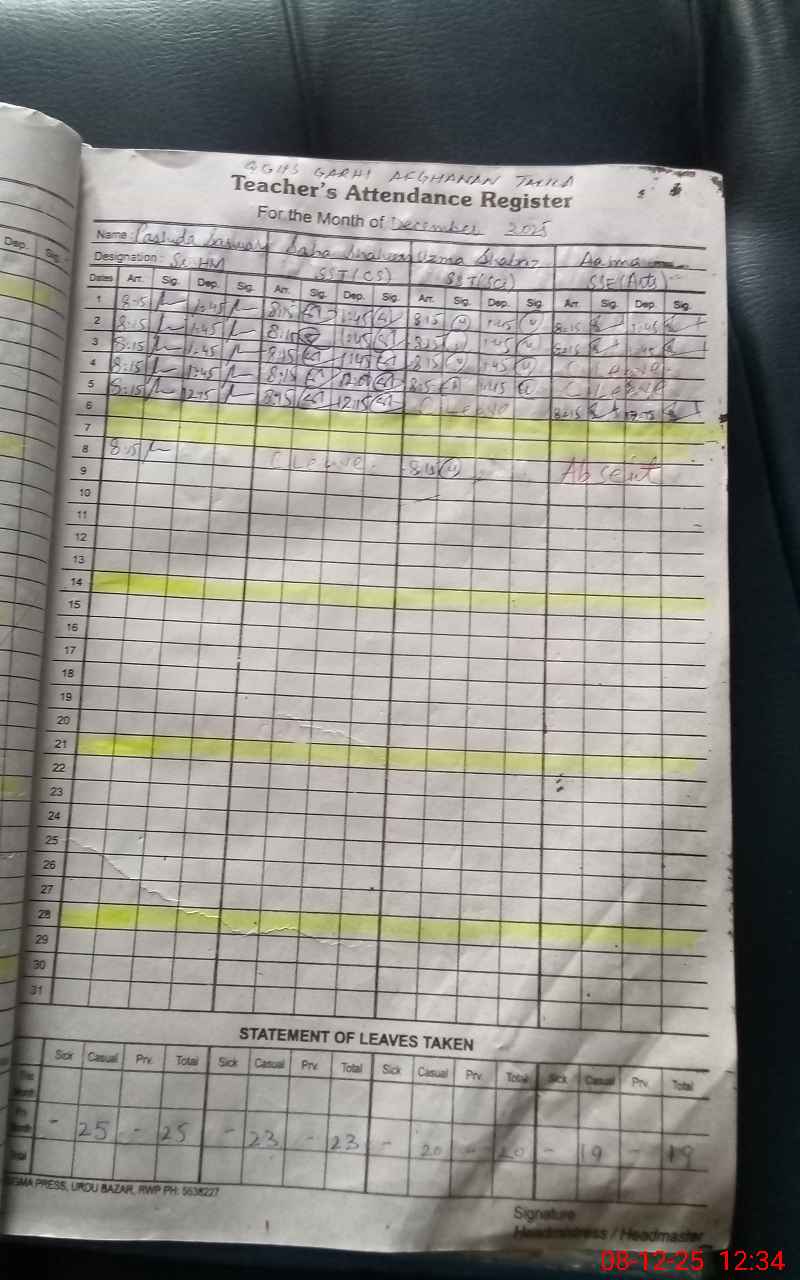 GGHS GARHI AFGHANAN TAXILA
Teacher's Attendance Register
For the Month of December 2025
Name: Saba Uzma Asma
Designation: Sr. HM SST(CS) SST(Sci) SSE(Arts)
Dep. Sig.
Dates Arr. Sig. Dep. Sig. Arr. Sig. Dep. Sig. Arr. Sig. Dep. Sig. Arr. Sig. Dep. Sig.
1 8:15 1:45 8:15 1:45 8:15 1:45 8:15 1:45
2 8:15 1:45 8:15 1:45 8:15 1:45 8:15 1:45
3 8:15 1:45 8:15 1:45 8:15 1:45 C Leave
4 8:15 1:45 8:15 8:15 1:45 C Leave
5 8:15 12:15 8:15 12:15 C Leave 8:15 12:15
6
7
8 8:15 C Leave 8:15 Absent
9
10
11
12
13
14
15
16
17
18
19
20
21
22
23
24
25
26
27
28
29
30
31
STATEMENT OF LEAVES TAKEN
Sick Casual Prv. Total Sick Casual Prv. Total Sick Casual Prv. Total Sick Casual Prv. Total
This Month
Month - 25 - 25 - 23 - 23 - 20 - 20 - 19 - 19
Total
PRESS, URDU BAZAR, RWP PH: 5538227
Signature
Headmistress / Headmaster
08-12-25 12:34